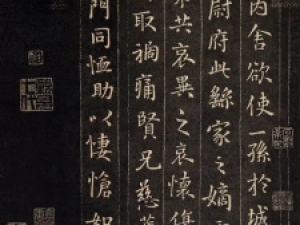 内舍欲使一孫於城
尉府此繇家之嫡
共哀異之哀懷傷
取禍痛賢兄慈
門同恤助以悽愴